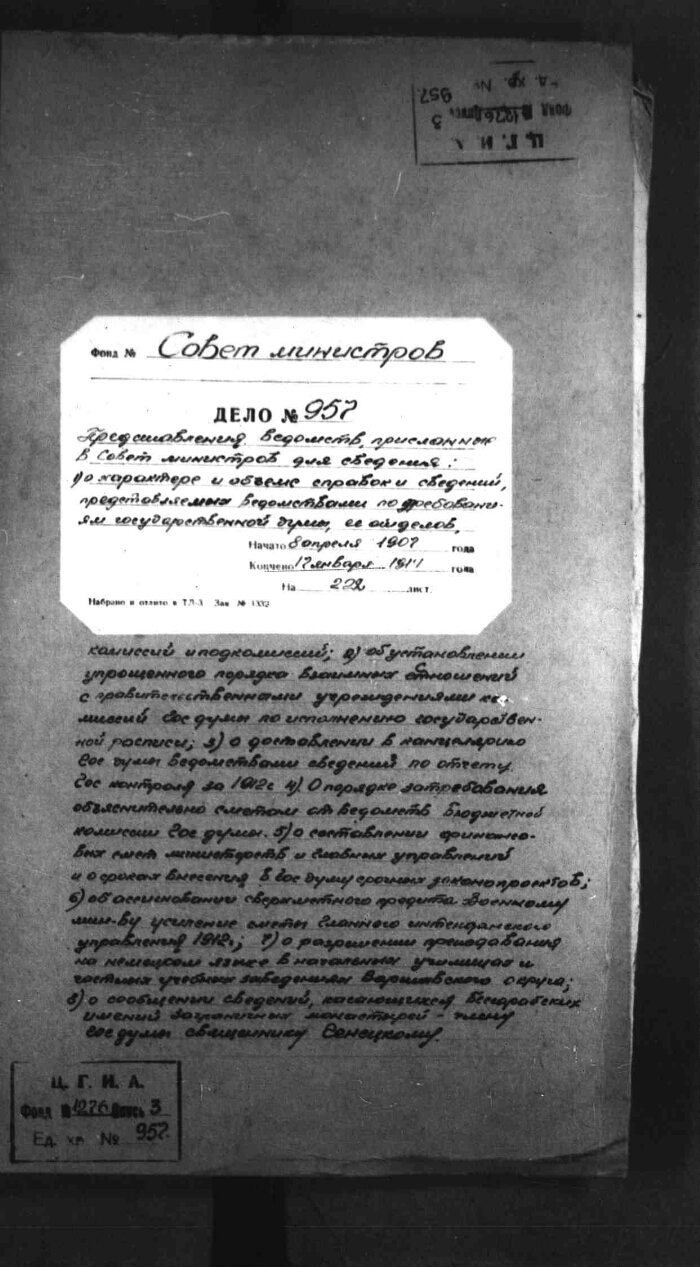 Ц. Г. И. А.
Фонд № 1276 Опись 3
Ед. хр. № 957
Фонд № Совет министров
ДЕЛО № 957
Представления ведомств, присланные
в Совет министров для сведения:
1) о характере и объеме справок и сведений,
представляемых ведомствами по требовани-
ям государственной думы, ее отделов,
Начато 8 апреля 1907 года
Кончено 17 января 1914 года
На 222 лист.
Набрано и отлито в ТЛ-3 Зак № 1332
комиссий и подкомиссий; 2) об установлении
упрощенного порядка взаимных сношений
с правительственными учреждениями ко-
миссий Гос думы по исполнению государствен-
ной росписи; 3) о доставлении в канцелярию
Гос думы ведомствами сведений по отчету
Гос контроля за 1912г 4) О порядке затребования
объяснительно сметам от ведомств Бюджетной
комиссии Гос думы. 5) о составлении финансо-
вых смет министерств и Главных управлений
и о сроках внесения в Гос думу срочных законопроектов;
6) об ассигновании сверхсметного кредита Военному
мин-ву усиление сметы Главного интенданского
управления 1912г; 7) о разрешении преподавания
на немецком языке в начальных училищах и
частных учебных заведениях Варшавского округа;
8) о сообщении сведений, касающихся Бессарабских
имений заграничных монастырей - члену
Гос думы священнику Сенецкому.
Ц. Г. И. А.
Фонд № 1276 Опись 3
Ед. хр № 957.